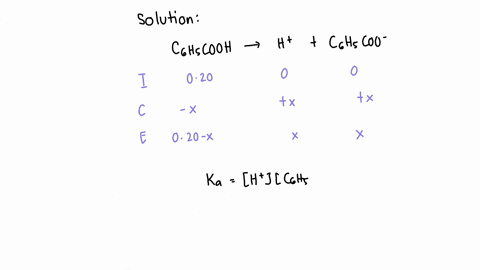 Solution:
C₆H₅COOH → H⁺ + C₆H₅COO⁻
I 0.20 0 0
C -x +x +x
E 0.20-x x x
Ka = [H⁺][C₆H₅